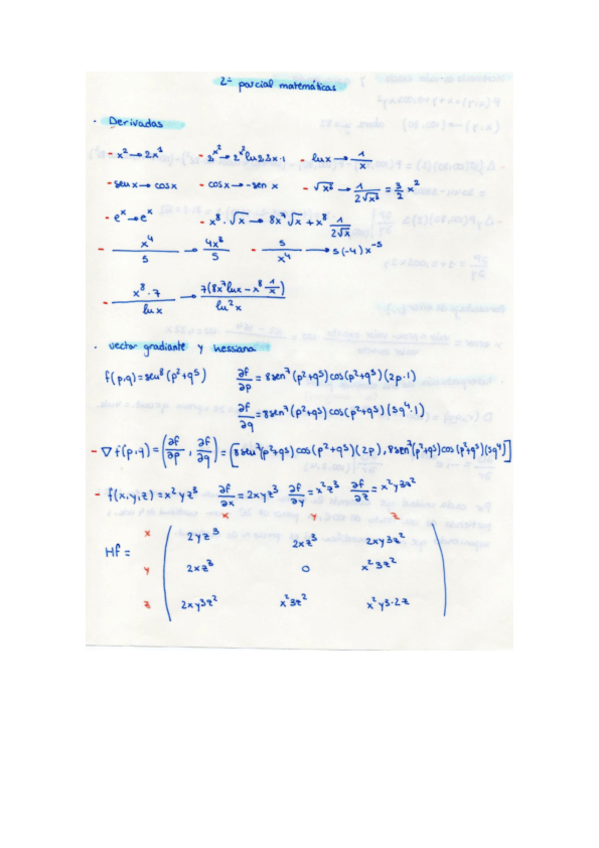 2º parcial matemáticas
· Derivadas
- x² → 2x¹ - 2^x² → 2^x² ln2·2x·1 - lnx → 1/x
- senx → cosx - cosx → -senx - √x³ → 1/2√x³ = 3/2 x²
- e^x → e^x - x⁸·√x → 8x⁷√x + x⁸ 1/2√x
- x⁴/5 → 4x³/5 - 5/x⁴ → 5(-4)x⁻⁵
- x⁸·7/lnx → 7(8x⁷lnx - x⁸ 1/x)/ln²x
· vector gradiante y hessiana
f(p,q) = sen⁸(p²+q⁵) ∂f/∂p = 8sen⁷(p²+q⁵)cos(p²+q⁵)(2p·1)
∂f/∂q = 8sen⁷(p²+q⁵)cos(p²+q⁵)(5q⁴·1)
- ∇f(p,q) = (∂f/∂p, ∂f/∂q) = [8sen⁷(p²+q⁵)cos(p²+q⁵)(2p), 8sen⁷(p²+q⁵)cos(p²+q⁵)(5q⁴)]
- f(x,y,z) = x²yz³ ∂f/∂x = 2xyz³ ∂f/∂y = x²z³ ∂f/∂z = x²y3z²
x y z
x 2yz³ 2xz³ 2xy3z²
Hf =
y 2xz³ 0 x²3z²
z 2xy3z² x²3z² x²y3·2z